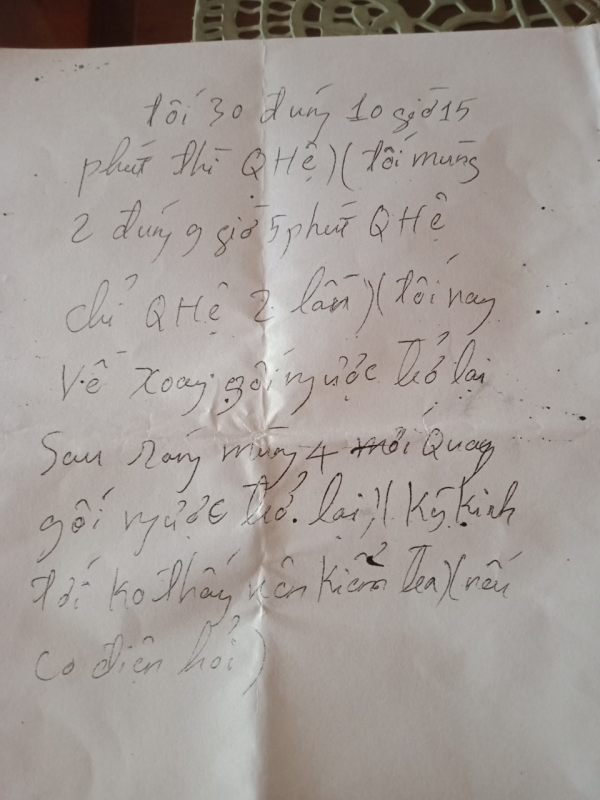 tối 30 đúng 10 giờ 15
phút thì QHệ)(tối mùng
2 đúng 9 giờ 5 phút QHệ
chỉ QHệ 2 lần)(tối nay
Về xoay gối ngược trở lại
Sau sáng mùng 4 mới Quay
gối ngược trở lại)(Kỳ Kinh
tới ko thấy nên Kiểm tra)(nếu
có điện hỏi)